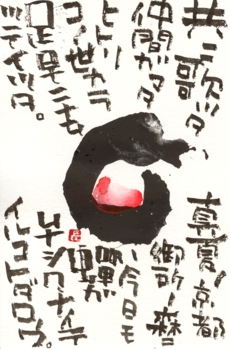 共ニ歌ッタ、
仲間ガマタ
ヒトリ
コノ世カラ
足早ニ去
ッテイッタ。
真夏ノ京都
御所ノ森ニ
ハ今日モ
ナイテ
イルコトダロウ。